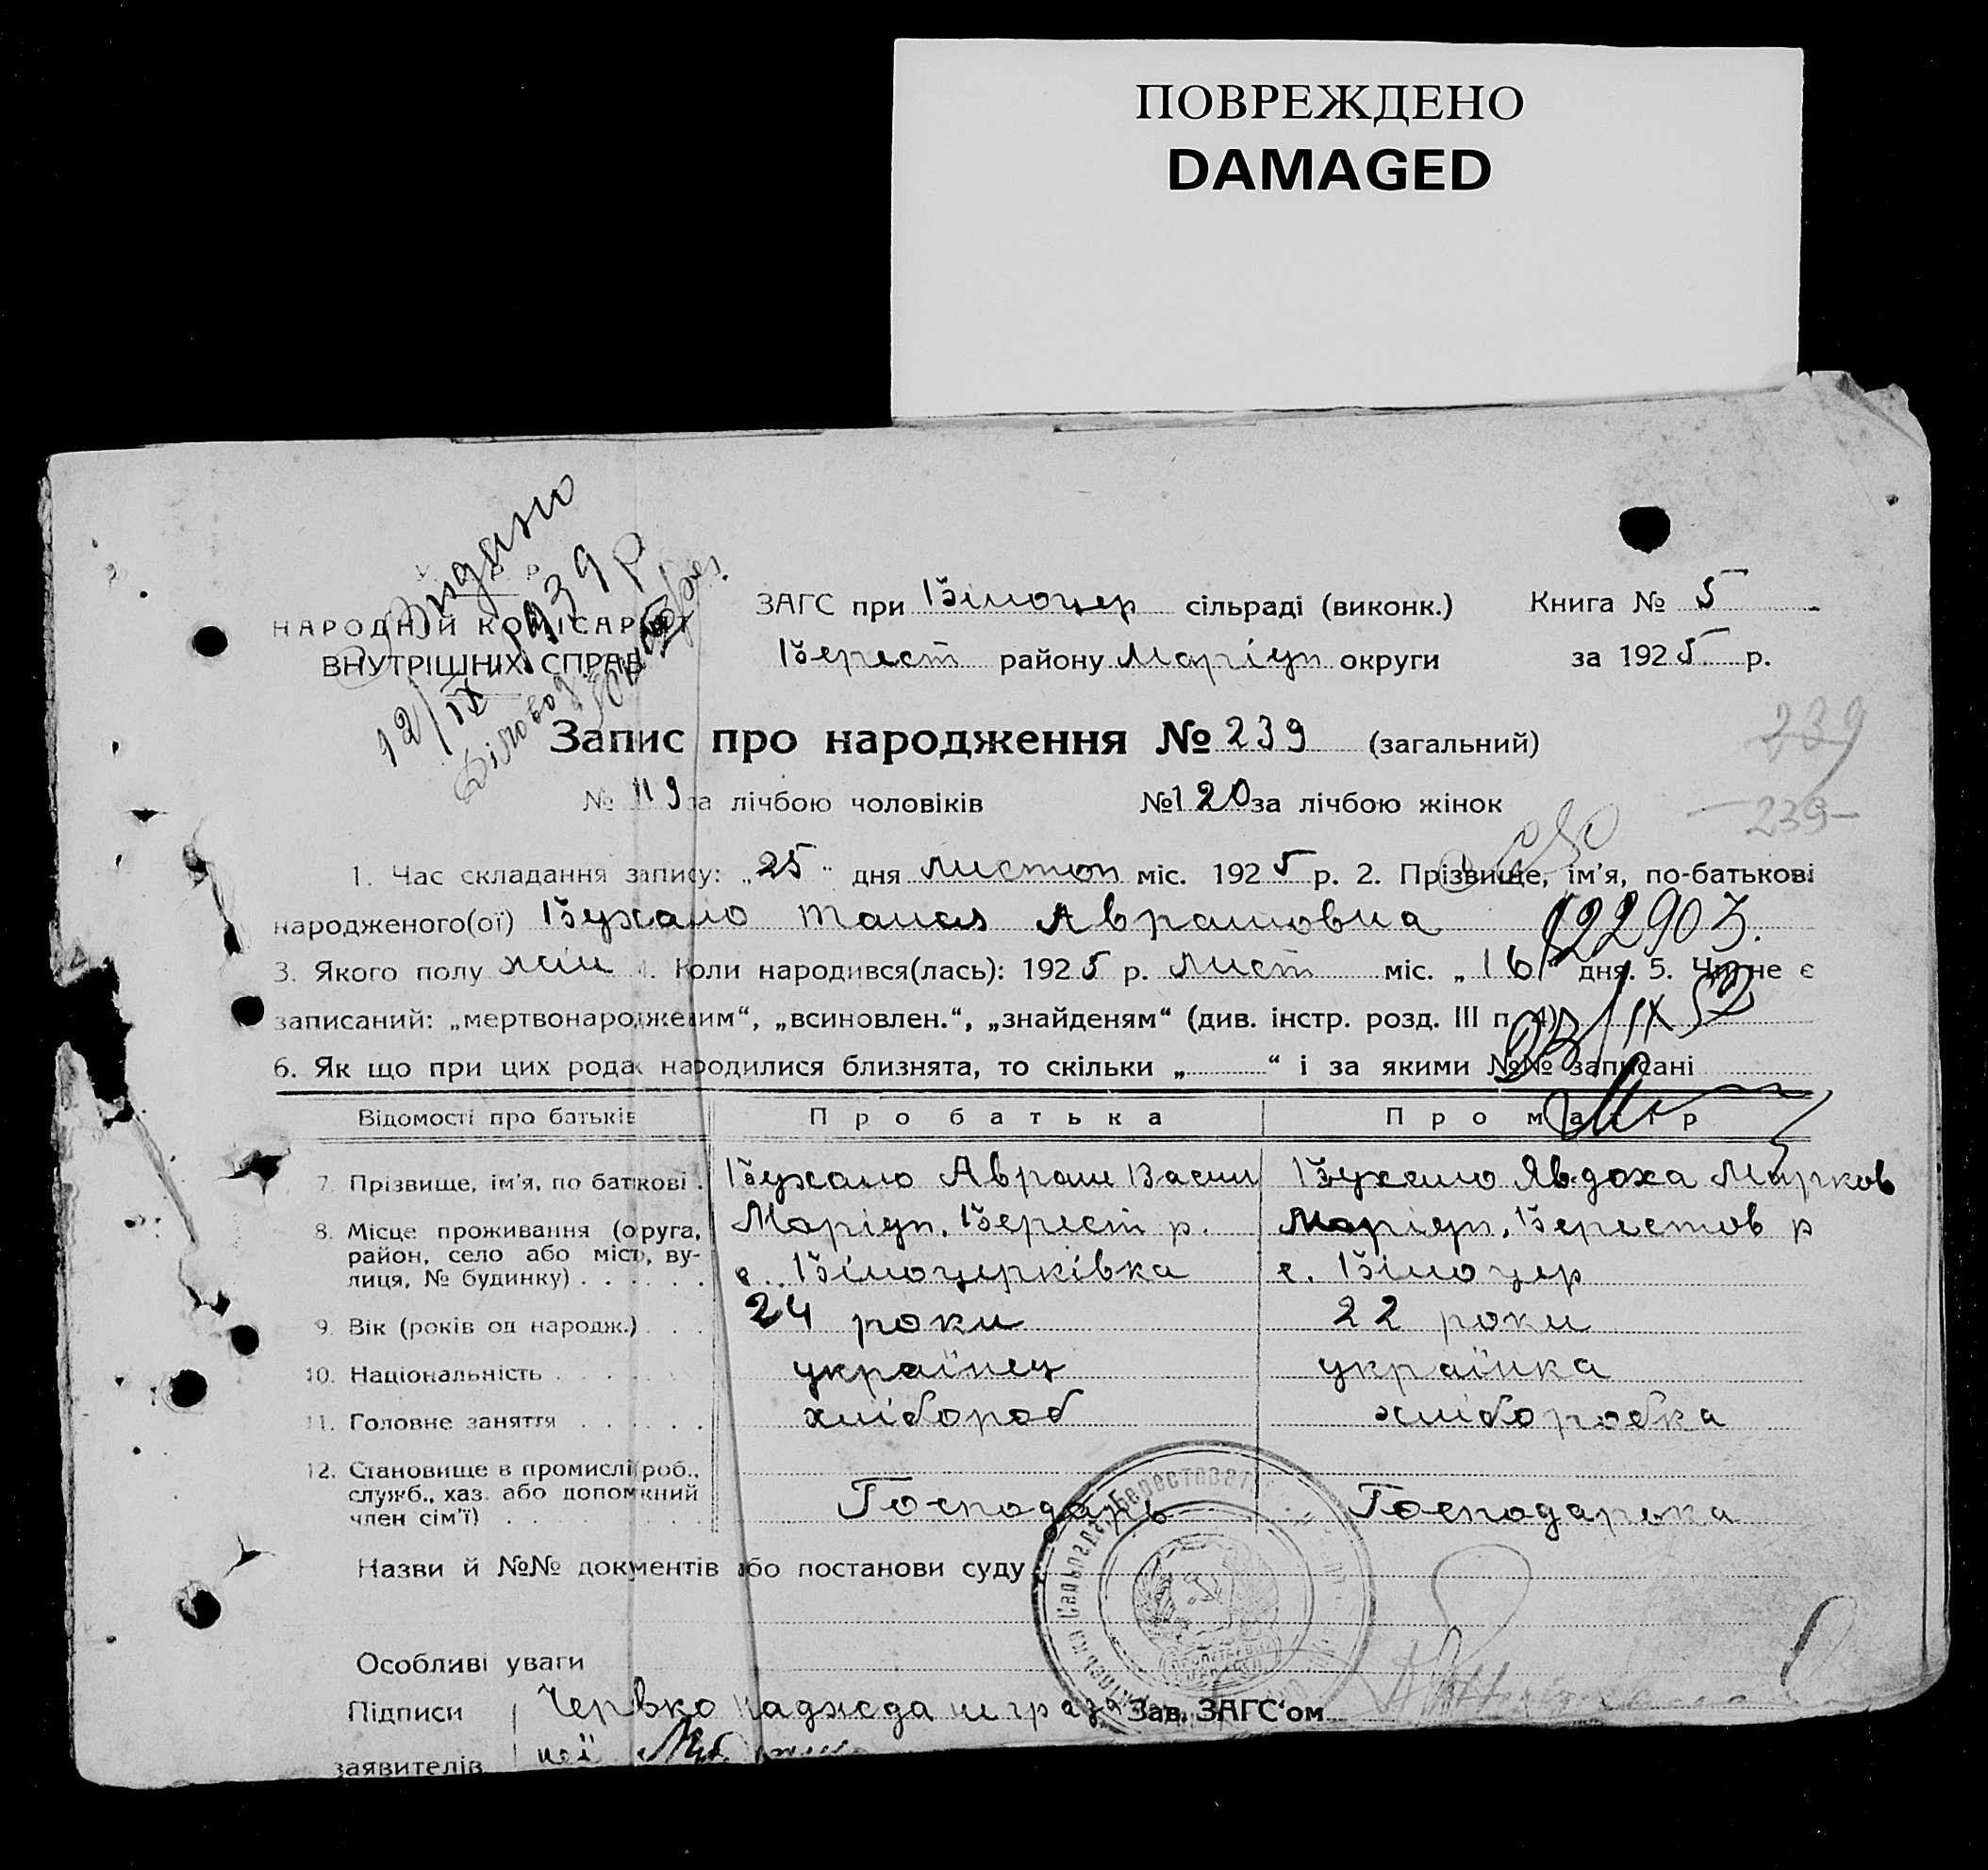 ПОВРЕЖДЕНО
DAMAGED
Видано
12/IX 1939 р
Діловод
У С Р Р
НАРОДНІЙ КОМІСАРІЯТ
ВНУТРІШНІХ СПРАВ
ЗАГС при Білоцер сільраді (виконк.) Книга № 5
Берест району Маріуп округи за 1925 р.
Запис про народження № 239 (загальний)
239
№ 119 за лічбою чоловіків №120 за лічбою жінок
239-
1. Час складання запису: „25“ дня листоп міс. 1925 р. 2. Прізвище, ім'я, по-батькові
народженого(ої) Бухало Танас Аврамовна
122903.
3. Якого полу жін 4. Коли народився(лась): 1925 р. лист міс. „16“ дня. 5. Чи не є
записаний: „мертвонародженим“, „всиновлен.“, „знайденям“ (див. інстр. розд. III п. 4)
23/IX 52
6. Як що при цих родах народилися близнята, то скільки „ “ і за якими №№ записані
Відомості про батьків Про батька Про матір
7. Прізвище, ім'я, по батькові . Бухало Аврам Васил Бухало Явдоха Марков
8. Місце проживання (округа, район, село або місто, вулиця, № будинку) . . . . . . Маріуп. Берест р. Маріуп. Берестов р
с. Білоцерківка с. Білоцер
9. Вік (років од народж.) . . . 24 роки 22 роки
10. Національність . . . . . . українец українка
11. Головне заняття . . . . . . хлібороб хліборобка
12. Становище в промислі (роб., служб., хаз. або допоміжний член сім'ї) . . . . . . Господарь Господарька
Назви й №№ документів або постанови суду
Особливі уваги
Підписи Червко Наджда неграз Зав. ЗАГС'ом
заявителів ної